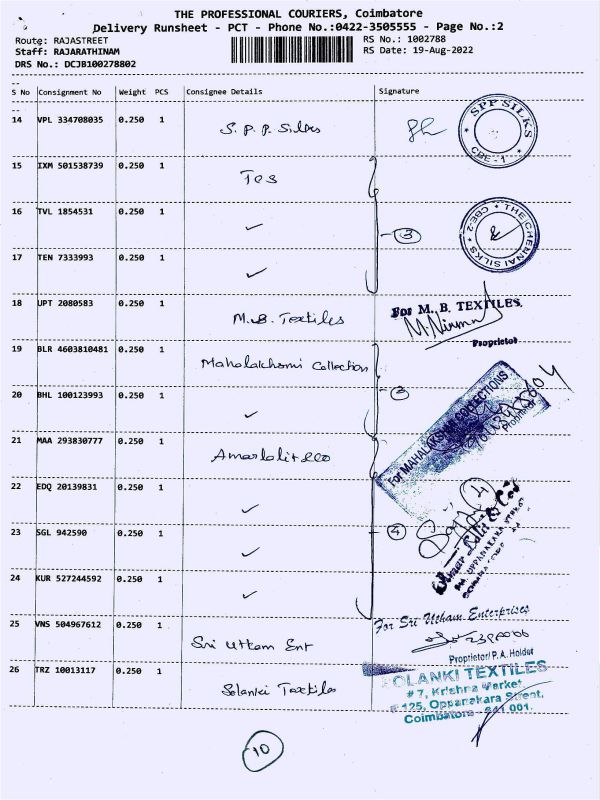 THE PROFESSIONAL COURIERS, Coimbatore
Delivery Runsheet - PCT - Phone No.:0422-3505555 - Page No.:2
Route: RAJASTREET
RS No.: 1002788
Staff: RAJARATHINAM
RS Date: 19-Aug-2022
DRS No.: DCJB100278802
S No Consignment No Weight PCS Consignee Details Signature
14 VPL 334708035 0.250 1 S. P. P. Silks
SPP SILKS
CBE-1
15 IXM 501538739 0.250 1 TCS
16 TVL 1854531 0.250 1 ✓
3
* THE CHENNAI SILKS * CBE-2
17 TEN 7333993 0.250 1 ✓
18 UPT 2080583 0.250 1 M.B. Textiles
For M. B. TEXTILES.
Proprietor
19 BLR 4603810481 0.250 1 Mahalakshmi Collection
For MAHALAKSHMI COLLECTIONS
Proprietor
20 BHL 100123993 0.250 1 ✓
21 MAA 293830777 0.250 1
22 EDQ 20139831 0.250 1 ✓
4
23 SGL 942590 0.250 1 ✓
4
24 KUR 527244592 0.250 1 ✓
25 VNS 504967612 0.250 1 Sri Uttam Ent
For Sri Utham Enterprises
Proprietor/ P.A. Holder
26 TRZ 10013117 0.250 1 Solanki Textiles
OLANKI TEXTILES
# 7, Krishna Market
# 125, Oppanakara Street,
Coimbatore - 641 001.
10